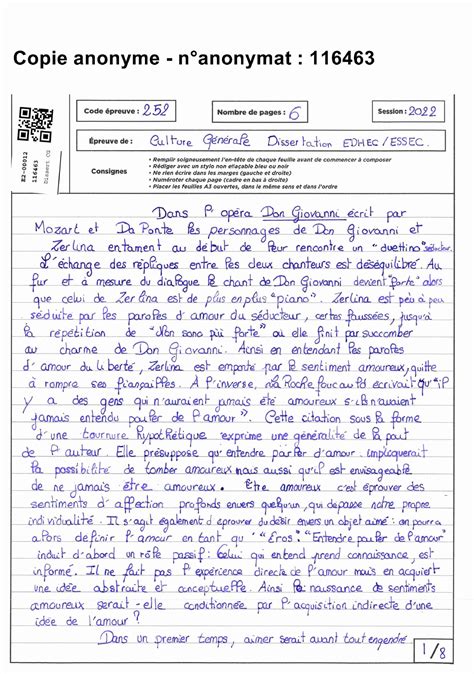 Copie anonyme - n°anonymat : 116463
Code épreuve : 252
Nombre de pages : 6
Session : 2022
Épreuve de : Culture Générale Dissertation EDHEC/ESSEC
Consignes
• Remplir soigneusement l'en-tête de chaque feuille avant de commencer à composer
• Rédiger avec un stylo non effaçable bleu ou noir
• Ne rien écrire dans les marges (gauche et droite)
• Numéroter chaque page (cadre en bas à droite)
• Placer les feuilles A3 ouvertes, dans le même sens et dans l'ordre
116463
Dans l'opéra Don Giovanni écrit par
Mozart et Da Ponte les personnages de Don Giovanni et
Zerlina entament au début de leur rencontre un "duettino" séducteur.
L'échange des répliques entre les deux chanteurs est déséquilibré. Au
fur et à mesure du dialogue le chant de Don Giovanni devient "forte" alors
que celui de Zerlina est de plus en plus "piano". Zerlina est peu à peu
séduite par les paroles d'amour du séducteur, certes faussées, jusqu'à
la répétition de "Non sono più forte" où elle finit par succomber
au charme de Don Giovanni. Ainsi en entendant les paroles
d'amour du libertin, Zerlina est emportée par le sentiment amoureux, quitte
à rompre ses fiançailles. A l'inverse, La Rochefoucauld écrivait qu'"il
y a des gens qui n'auraient jamais été amoureux s'ils n'avaient
jamais entendu parler de l'amour". Cette citation sous la forme
d'une tournure hypothétique exprime une généralité de la part
de l'auteur. Elle présuppose qu'entendre parler d'amour impliquerait
la possibilité de tomber amoureux mais aussi qu'il est envisageable
de ne jamais être amoureux. Être amoureux c'est éprouver des
sentiments d'affection profonds envers quelqu'un, qui dépasse notre propre
individualité. Il s'agit également d'éprouver du désir envers un objet aimé : on pourra
alors définir l'amour en tant qu'"Eros". "Entendre parler de l'amour"
induit d'abord un rôle passif : celui qui entend prend connaissance, est
informé. Il ne fait pas l'expérience directe de l'amour mais en acquiert
une idée abstraite et conceptuelle. Ainsi la naissance de sentiments
amoureux serait-elle conditionnée par l'acquisition indirecte d'une
idée de l'amour ?
Dans un premier temps, aimer serait avant tout engendré
1/8